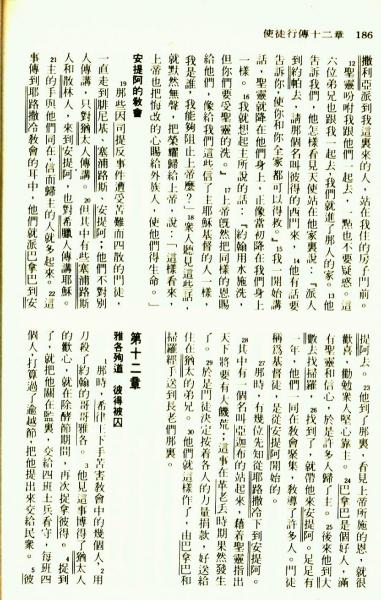 使徒行傳十二章　186
撒利亞派到我這裏來的人，站在我住的房子門前。
12聖靈吩咐我跟他們一起去，一點也不要疑惑。這
六位弟兄也跟我一起去；我們就進了那人的家。13他
告訴我們，他怎樣看見天使站在他家裏說：『派人
到約帕去，請那個名叫彼得的西門來，14他有話要
告訴你，使你和你全家都可以得救。』15我一開始講
話，聖靈就降在他們身上，正像當初降在我們身上
一樣。16我就想起主所說的話：『約翰用水施洗，
但你們要受聖靈的洗。』17上帝既然把同樣的恩賜
給他們，像給我們這些信了主耶穌基督的人一樣，
我是誰，我能夠阻止上帝麼？」18眾人聽見這些話，
就默然無聲，把榮耀歸於上帝，說：「這樣看來，
上帝也把悔改的心賜給外族人，使他們得生命。」
安提阿的教會
19那些因司提反事件遭受苦難而四散的門徒，
一直走到腓尼基、塞浦路斯、安提阿；他們不對別
人傳講，只對猶太人傳講。20但其中有些塞浦路斯
人和散林人，來到安提阿，也對希臘人傳講耶穌。
21主的手與他們同在，信而歸主的人就多起來。22這
事傳到耶路撒冷教會的耳中，他們就派巴拿巴到安
提阿去。23他到了那裏，看見上帝所施的恩，就很
歡喜，勸勉眾人堅心靠主。24巴拿巴是個好人，滿
有聖靈和信心，於是許多人歸了主。25後來他到大
數去找掃羅，26找到了，就帶他來安提阿。足足有
一年，他們一同在教會聚集，教導了許多人。門徒
稱爲基督徒，是從安提阿開始的。
27那時，有幾位先知從耶路撒冷下到安提阿。
28其中有一個名叫亞迦布的站起來，藉着聖靈指出
天下將要有大饑荒；這事在革老丟時期果然發生
了。29於是門徒決定按着各人的力量捐款，好送給
住在猶太的弟兄。30他們就這樣作了，由巴拿巴和
掃羅經手送到長老們那裏。
第十二章
雅各殉道　彼得被囚
1那時，希律王下手苦害教會中的幾個人，2用
刀殺了約翰的哥哥雅各。3他見這事博得了猶太人
的歡心，就在除酵節期間，再次捉拿彼得。4捉到
了，就把他關在監裏，交給四班士兵看守，每班四
個人，打算過了逾越節，把他提出來交給民衆。5彼